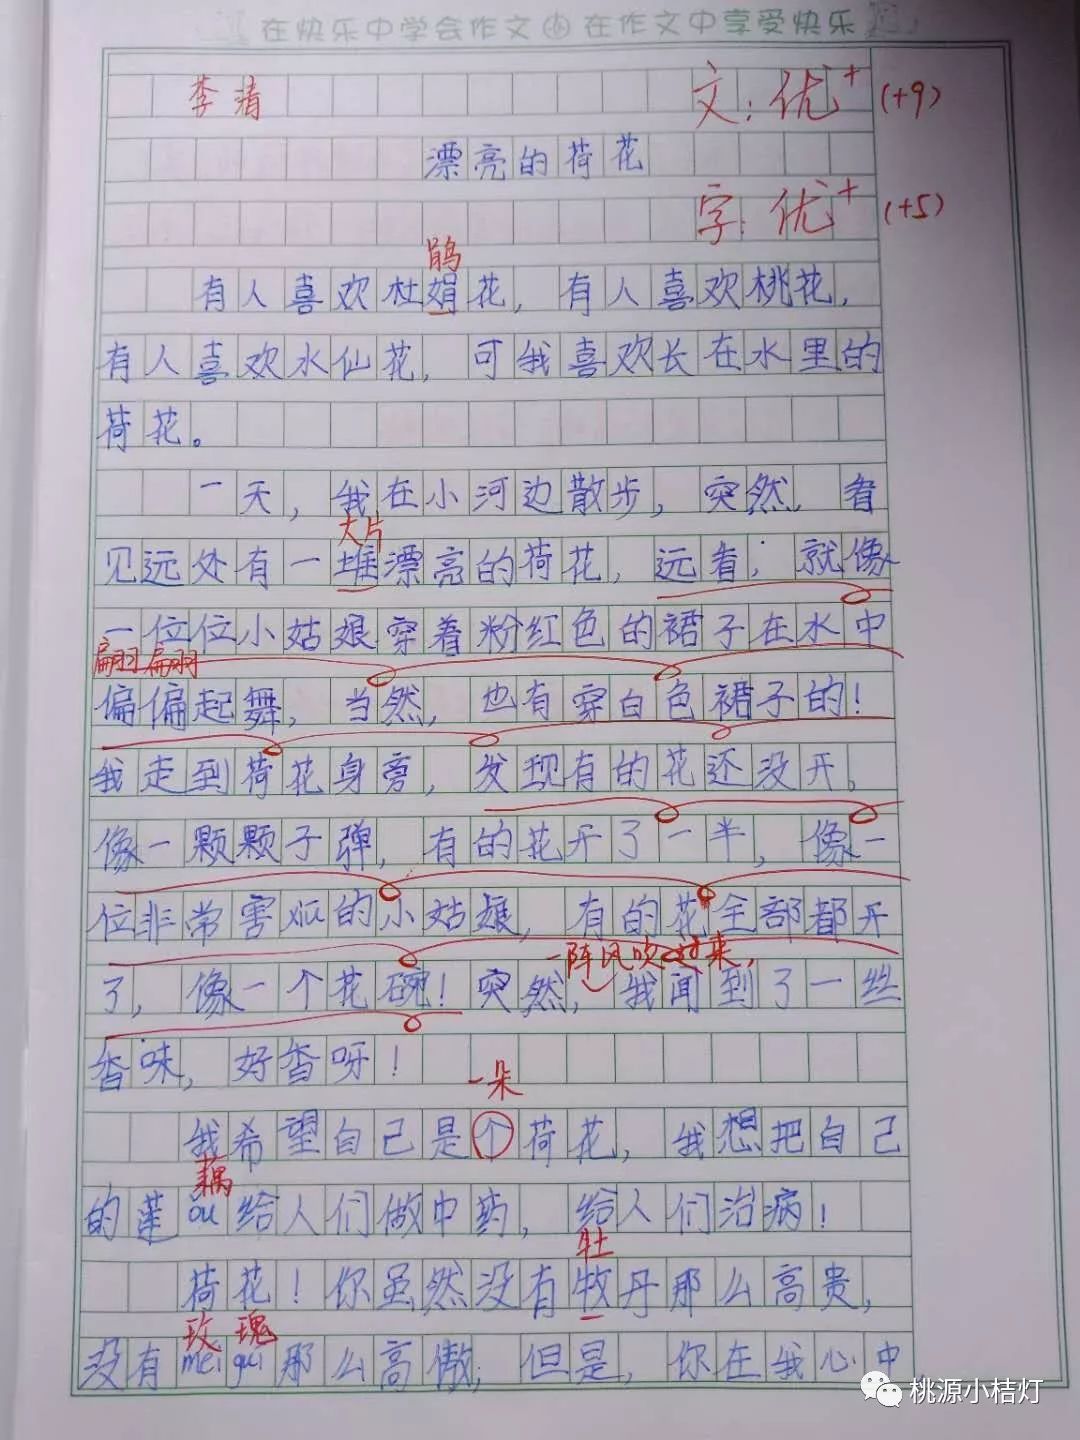 在快乐中学会作文 在作文中享受快乐
李清 文:优+ (+9)
漂亮的荷花
字:优+ (+5)
鹃
有人喜欢杜娟花,有人喜欢桃花,
有人喜欢水仙花,可我喜欢长在水里的
荷花。
一天,我在小河边散步,突然,看
大片
见远处有一堆漂亮的荷花,远看,就像
一位位小姑娘穿着粉红色的裙子在水中
翩翩
偏偏起舞,当然,也有穿白色裙子的!
我走到荷花身旁,发现有的花还没开。
像一颗颗子弹,有的花开了一半,像一
位非常害羞的小姑娘,有的花全部都开
一阵风吹过来,
了,像一个花碗!突然,我闻到了一丝
香味,好香呀!
一朵
我希望自己是个荷花,我想把自己
藕
的莲ou给人们做中药,给人们治病!
牡
荷花!你虽然没有牧丹那么高贵,
玫瑰
没有mei gui那么高傲,但是,你在我心中
桃源小桔灯